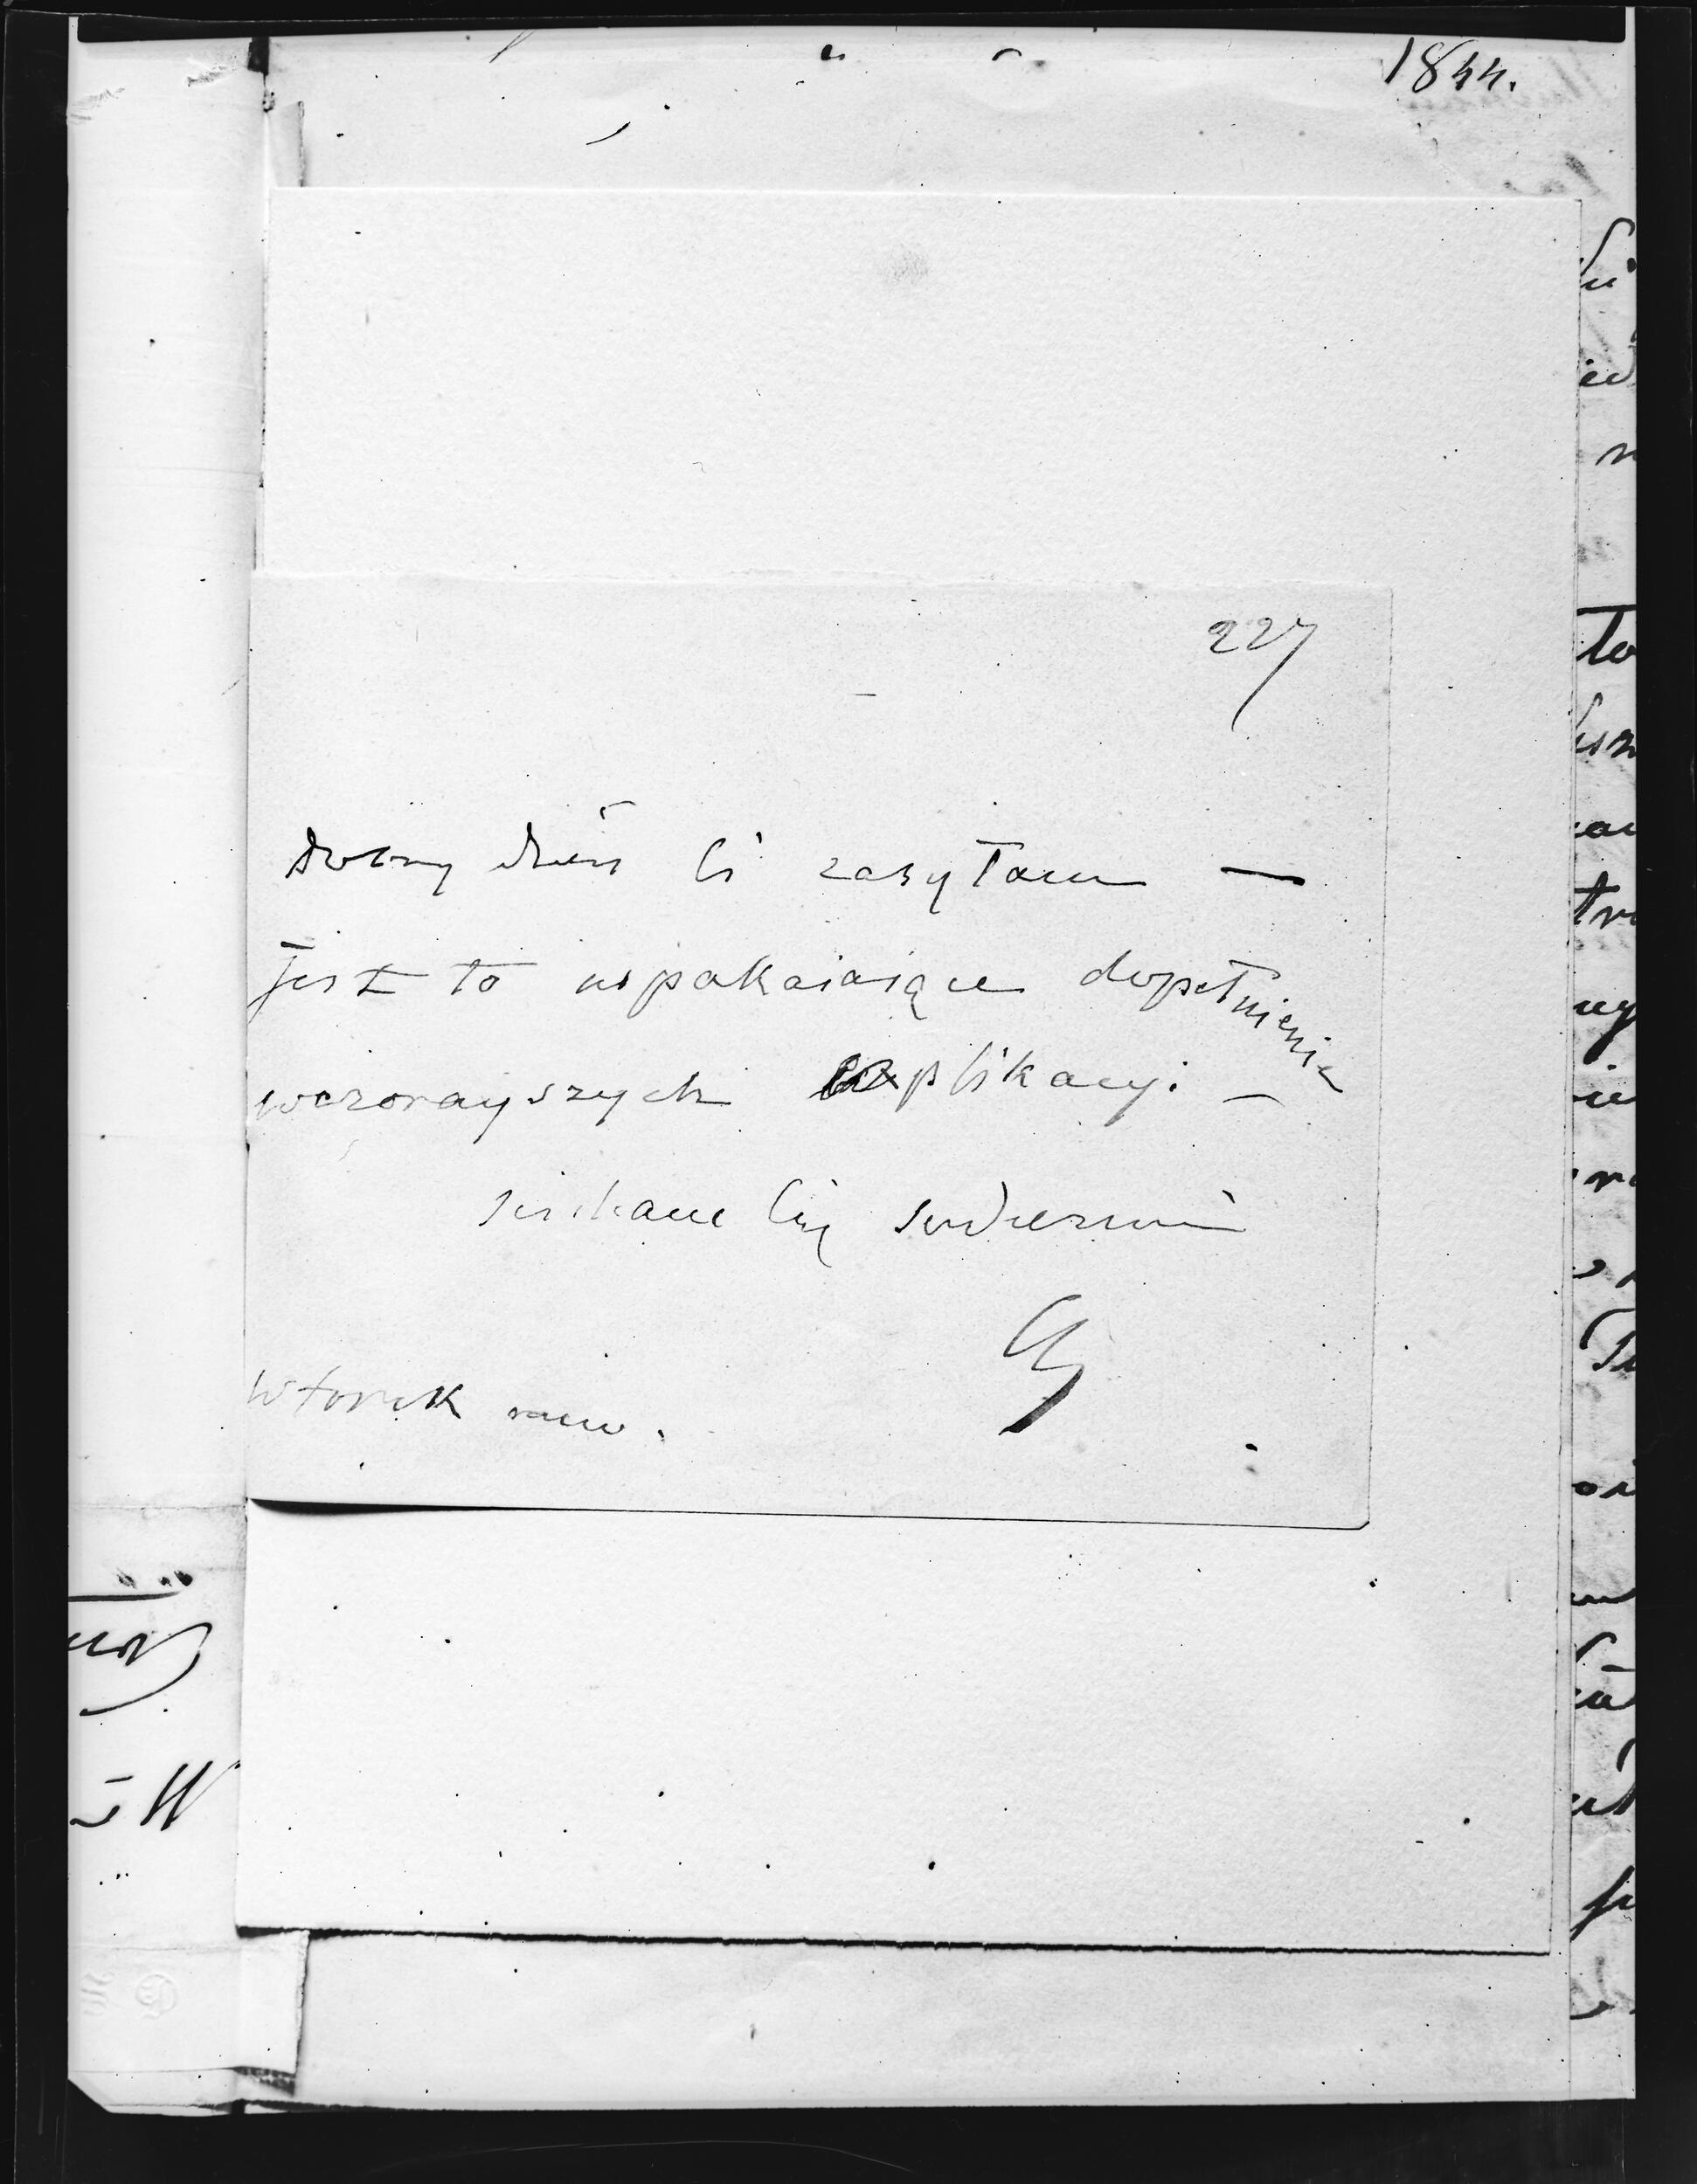 1844.
227
dobry dzień Ci zasyłam —
jest to uspakaiaiące dopełnienie
wczorayszych explikacyi —
ściskam Cię serdecznie
wtorek rano.